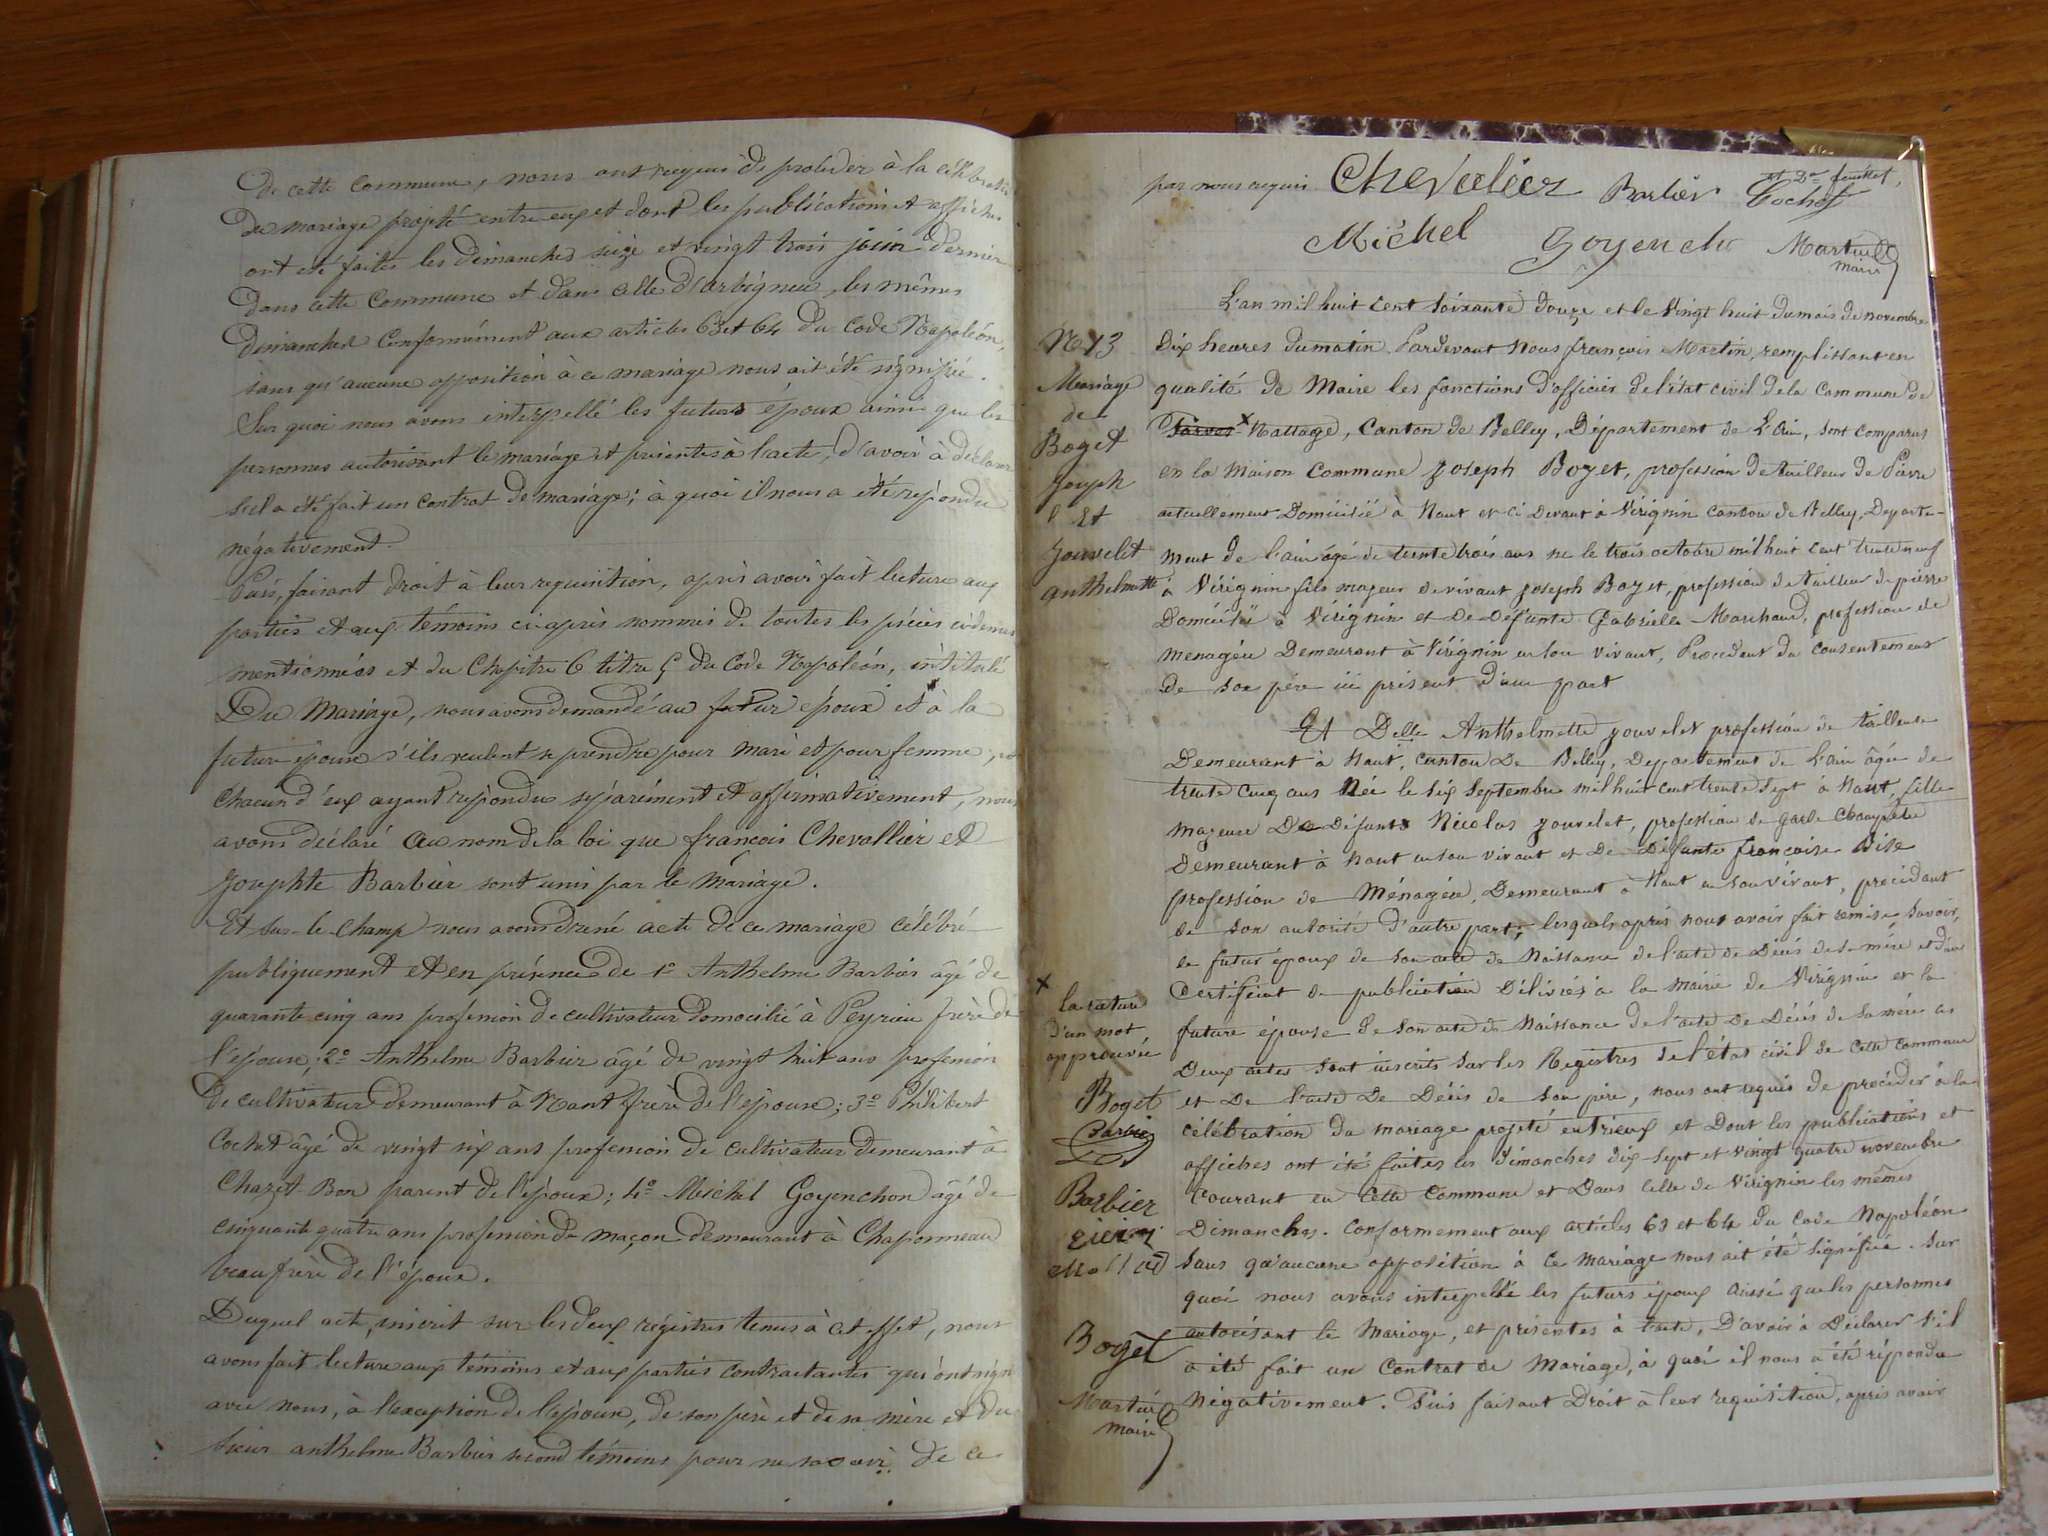 de cette Commune, nous ont requis de proceder à la célébration
du mariage projeté entre eux et dont les publications et affiches
ont été faites les dimanches seize et vingt trois juin dernier
dans cette Commune et dans celle d'arbignieu, les mêmes
dimanches Conformément aux articles 63 et 64 du Code Napoléon,
sans qu'aucune opposition à ce mariage nous ait été signifiée.
Sur quoi nous avons interpellé les futurs époux ainsi que les
personnes autorisant le mariage et présentes à l'acte, d'avoir à déclarer
s'il a été fait un contrat de mariage; à quoi il nous a été répondu
négativement.
Puis, faisant droit à leur requisition, après avoir fait lecture aux
parties et aux témoins ci après nommés de toutes les pièces ci dessus
mentionnées et du Chapitre 6 titre 5 du Code Napoléon, intitulé
Du Mariage, nous avons demandé au futur époux et à la
future épouse s'ils veulent se prendre pour mari et pour femme,
chacun d'eux ayant répondu séparément et affirmativement, nous
avons déclaré au nom de la loi que françois Chevallier et
Josephte Barbier sont unis par le mariage.
Et sur-le-champ nous avons dressé acte de ce mariage célébré
publiquement et en présence de 1º Anthelme Barbier âgé de
quarante cinq ans profession de cultivateur domicilié à Peyrieu frère de
l'épouse; 2º Anthelme Barbier âgé de vingt huit ans profession
de cultivateur demeurant à Nant frère de l'épouse; 3º Philibert
Cochet âgé de vingt six ans profession de cultivateur demeurant à
Chazet-Bon parent de l'époux; 4º Michel Goyenchon âgé de
cinquante quatre ans profession de maçon demeurant à Chaponneau
beau frère de l'époux.
Duquel acte, inscrit sur les deux registres tenus à cet effet, nous
avons fait lecture aux témoins et aux parties contractantes qui ont signé
avec nous, à l'exception de l'épouse, de son père et de sa mère et du
sieur anthelme Barbier second témoins pour ne savoir de ce
par nous requis Chevalier Barbier Cochet
Michel Goyencho Martin
maire
L'an mil huit cent soixante douze et le vingt huit du mois de novembre
Nº 13
Mariage
de
Boget
Joseph
Et
Jouvelet
anthelmette
dix heures du matin. Pardevant nous françois Martin, remplissant en
qualité de Maire les fonctions d'officier de l'état civil de la Commune de
Parves x Nattage, Canton de Belley, Département de L'Ain, sont comparus
en la maison commune Joseph Boget, profession de tailleur de Pierre
actuellement Domicilié à Nant et ci devant à Virignin canton de Belley, Départe-
ment de l'ain âgé de trente trois ans né le trois octobre mil huit cent trente neuf
à Virignin fils majeur de vivant Joseph Boget, profession de tailleur de pierre
Domicilié à Virignin et de Défunte Gabrielle Marchand, profession de
menagère Demeurant à Virignin en son vivant, Procédant du consentement
de son père ici présent d'une part
Et Delle Anthelmette Jouvelet profession de tailleuse
Demeurant à Nant, canton De Belley, Departement de L'ain âgée de
trente cinq ans Née le six septembre mil huit cent trente sept à Nant, fille
majeure De Défunts Nicolas Jouvelet, profession de garde champêtre
demeurant à Nant en son vivant et De Défunte françoise
profession de Ménagère, Demeurant à Nant en son vivant, précédant
de son autorité d'autre part; lesquels après nous avoir fait remise savoir,
le futur époux de son acte de Naissance de l'acte de Décès de sa mère et d'un
Certificat de publication Délivrés à la mairie de Virignin et la
future épouse de son acte de Naissance de l'acte De Décès de sa mère ces
Deux actes sont inscrits sur les Registres de l'état civil de cette commune
et De l'acte De Décès de son père, nous ont requis de procéder à la
célébration du mariage projeté entrieux et Dont les publications et
affiches ont été faites les Dimanches dix-sept et vingt quatre novembre
courant en cette commune et Dans celle de Virignin les mêmes
Dimanches. Conformement aux articles 63 et 64 du Code Napoléon
Sans qu'aucune opposition à ce mariage nous ait été signifiée. Sur
quoi nous avons interpellé les futurs époux aussi que les personnes
autorisant le Mariage, et présentes à l'acte, D'avoir à Déclarer s'il
a été fait un Contrat de Mariage, à quoi il nous a été répondu
Négativement. Puis faisant Droit à leur requisition, après avoir
x
la rature
d'un mot
approuvée
Boget
Barbier
Barbier
Boget
Martin
maire